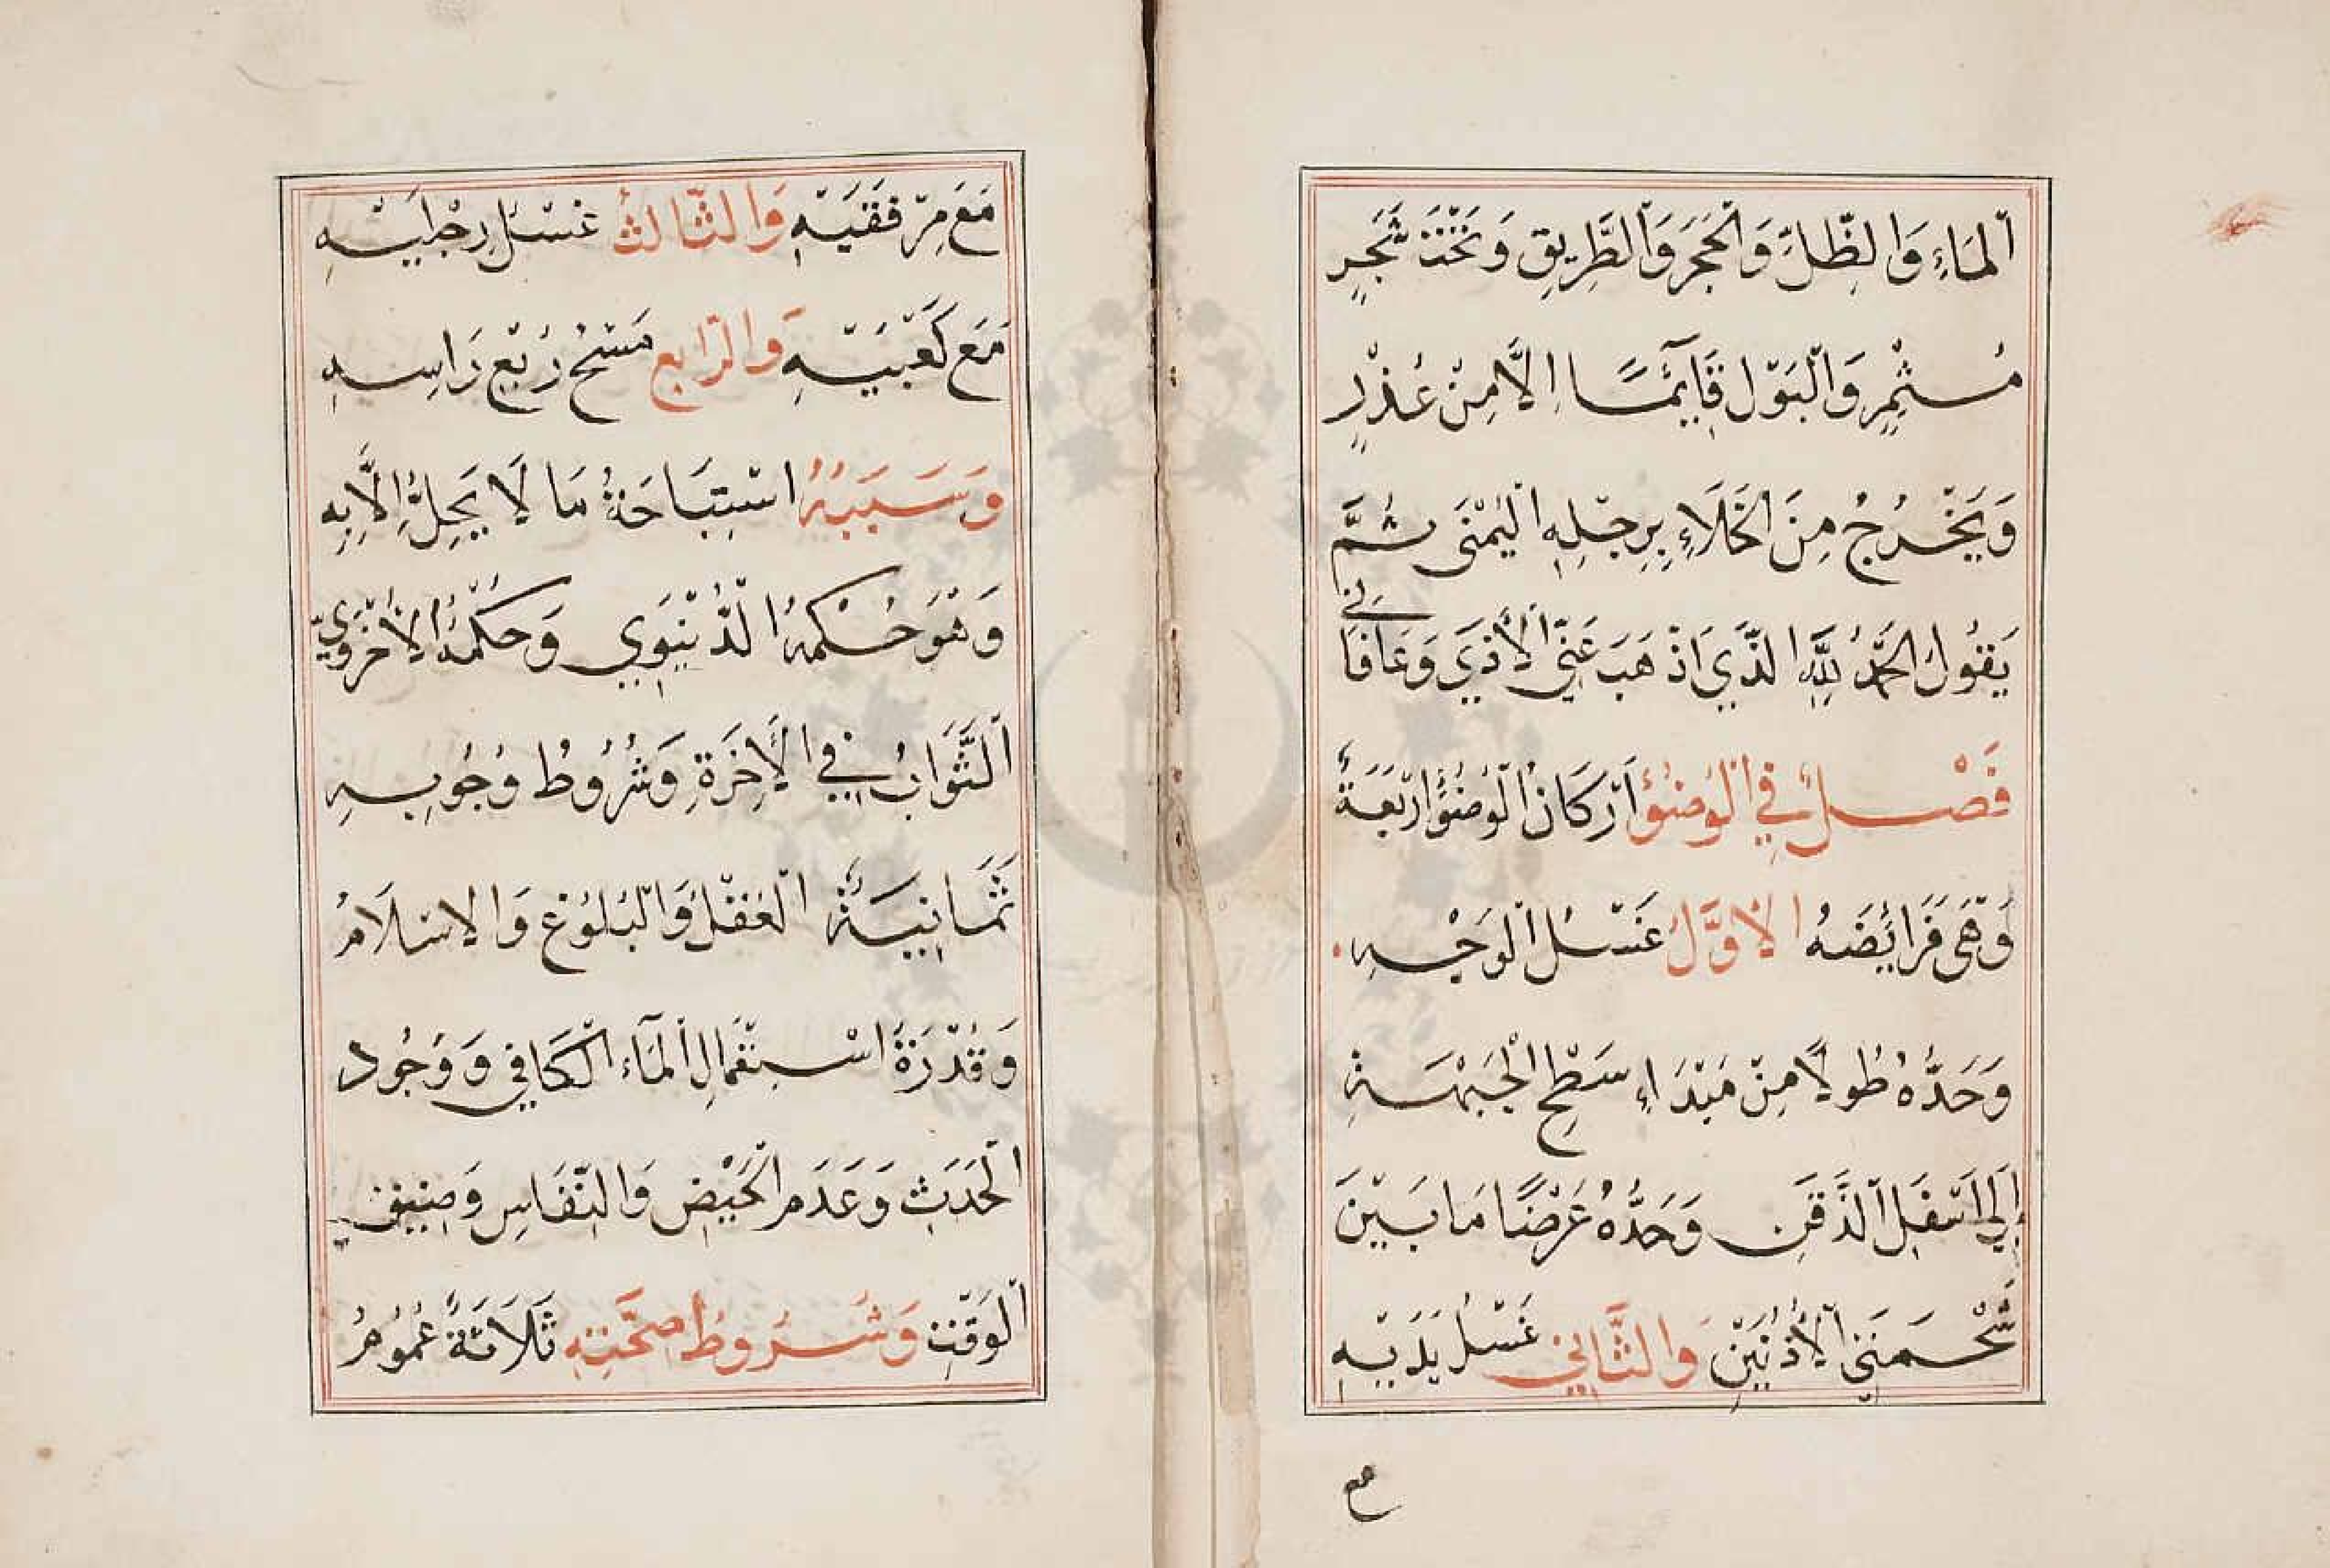 اَلْمَاءِ وَالظِّلِّ وَالْحَجَرِ وَالطَّرِيقِ وَتَحْتَ شَجَرٍ
مُثْمِرٍ وَالْبَوْلَ قَآئِمًا اِلَّا مِنْ عُذْرٍ
وَيَخْرُجُ مِنَ الْخَلَاءِ بِرِجْلِهِ الْيُمْنَى ثُمَّ
يَقُولُ الْحَمْدُ لِلّٰهِ الَّذِي اَذْهَبَ عَنِّي الْأَذَي وَعَافَانِي
فَصْلٌ فِي الْوُضُوءِ اَرْكَانُ الْوُضُوءِ اَرْبَعَةٌ
وَهِيَ فَرَائِضُهُ الْاَوَّلُ غَسْلُ الْوَجْهِ
وَحَدُّهُ طُولًا مِنْ مَبْدَاءِ سَطْحِ الْجَبْهَةِ
إِلَي اَسْفَلِ الذَّقَنِ وَحَدُّهُ عَرْضًا مَا بَيْنَ
شَحْمَتَيِ الْأُذُنَيْنِ وَالثَّانِي غَسْلُ يَدَيْهِ
مع
مَعَ مِرْفَقَيْهِ وَالثَّالِثُ غَسْلُ رِجْلَيْهِ
مَعَ كَعْبَيْهِ وَالرَّابِعُ مَسْحُ رُبْعِ رَاسِهِ
وَسَبَبُهُ اسْتِبَاحَةُ مَا لَا يَحِلُّ اِلَّا بِهِ
وَهُوَ حُكْمُهُ الدُّنْيَوِي وَحُكْمُهُ الْأُخْرَوِيُّ
اَلثَّوَابُ فِي الْأَخِرَةِ وَشُرُوطُ وُجُوبِهِ
ثَمَانِيَةٌ الْعَقْلُ وَالْبُلُوغُ وَالْاِسْلَامُ
وَقُدْرَةُ اسْتِعْمَالِ الْمَآءِ الْكَافِي وَوُجُودُ
الْحَدَثِ وَعَدَمُ الْحَيْضِ وَالنِّفَاسِ وَضِيقِ
الْوَقْتِ وَشُرُوطُ صِحَّتِهِ ثَلَاثَةٌ عُمُومُ